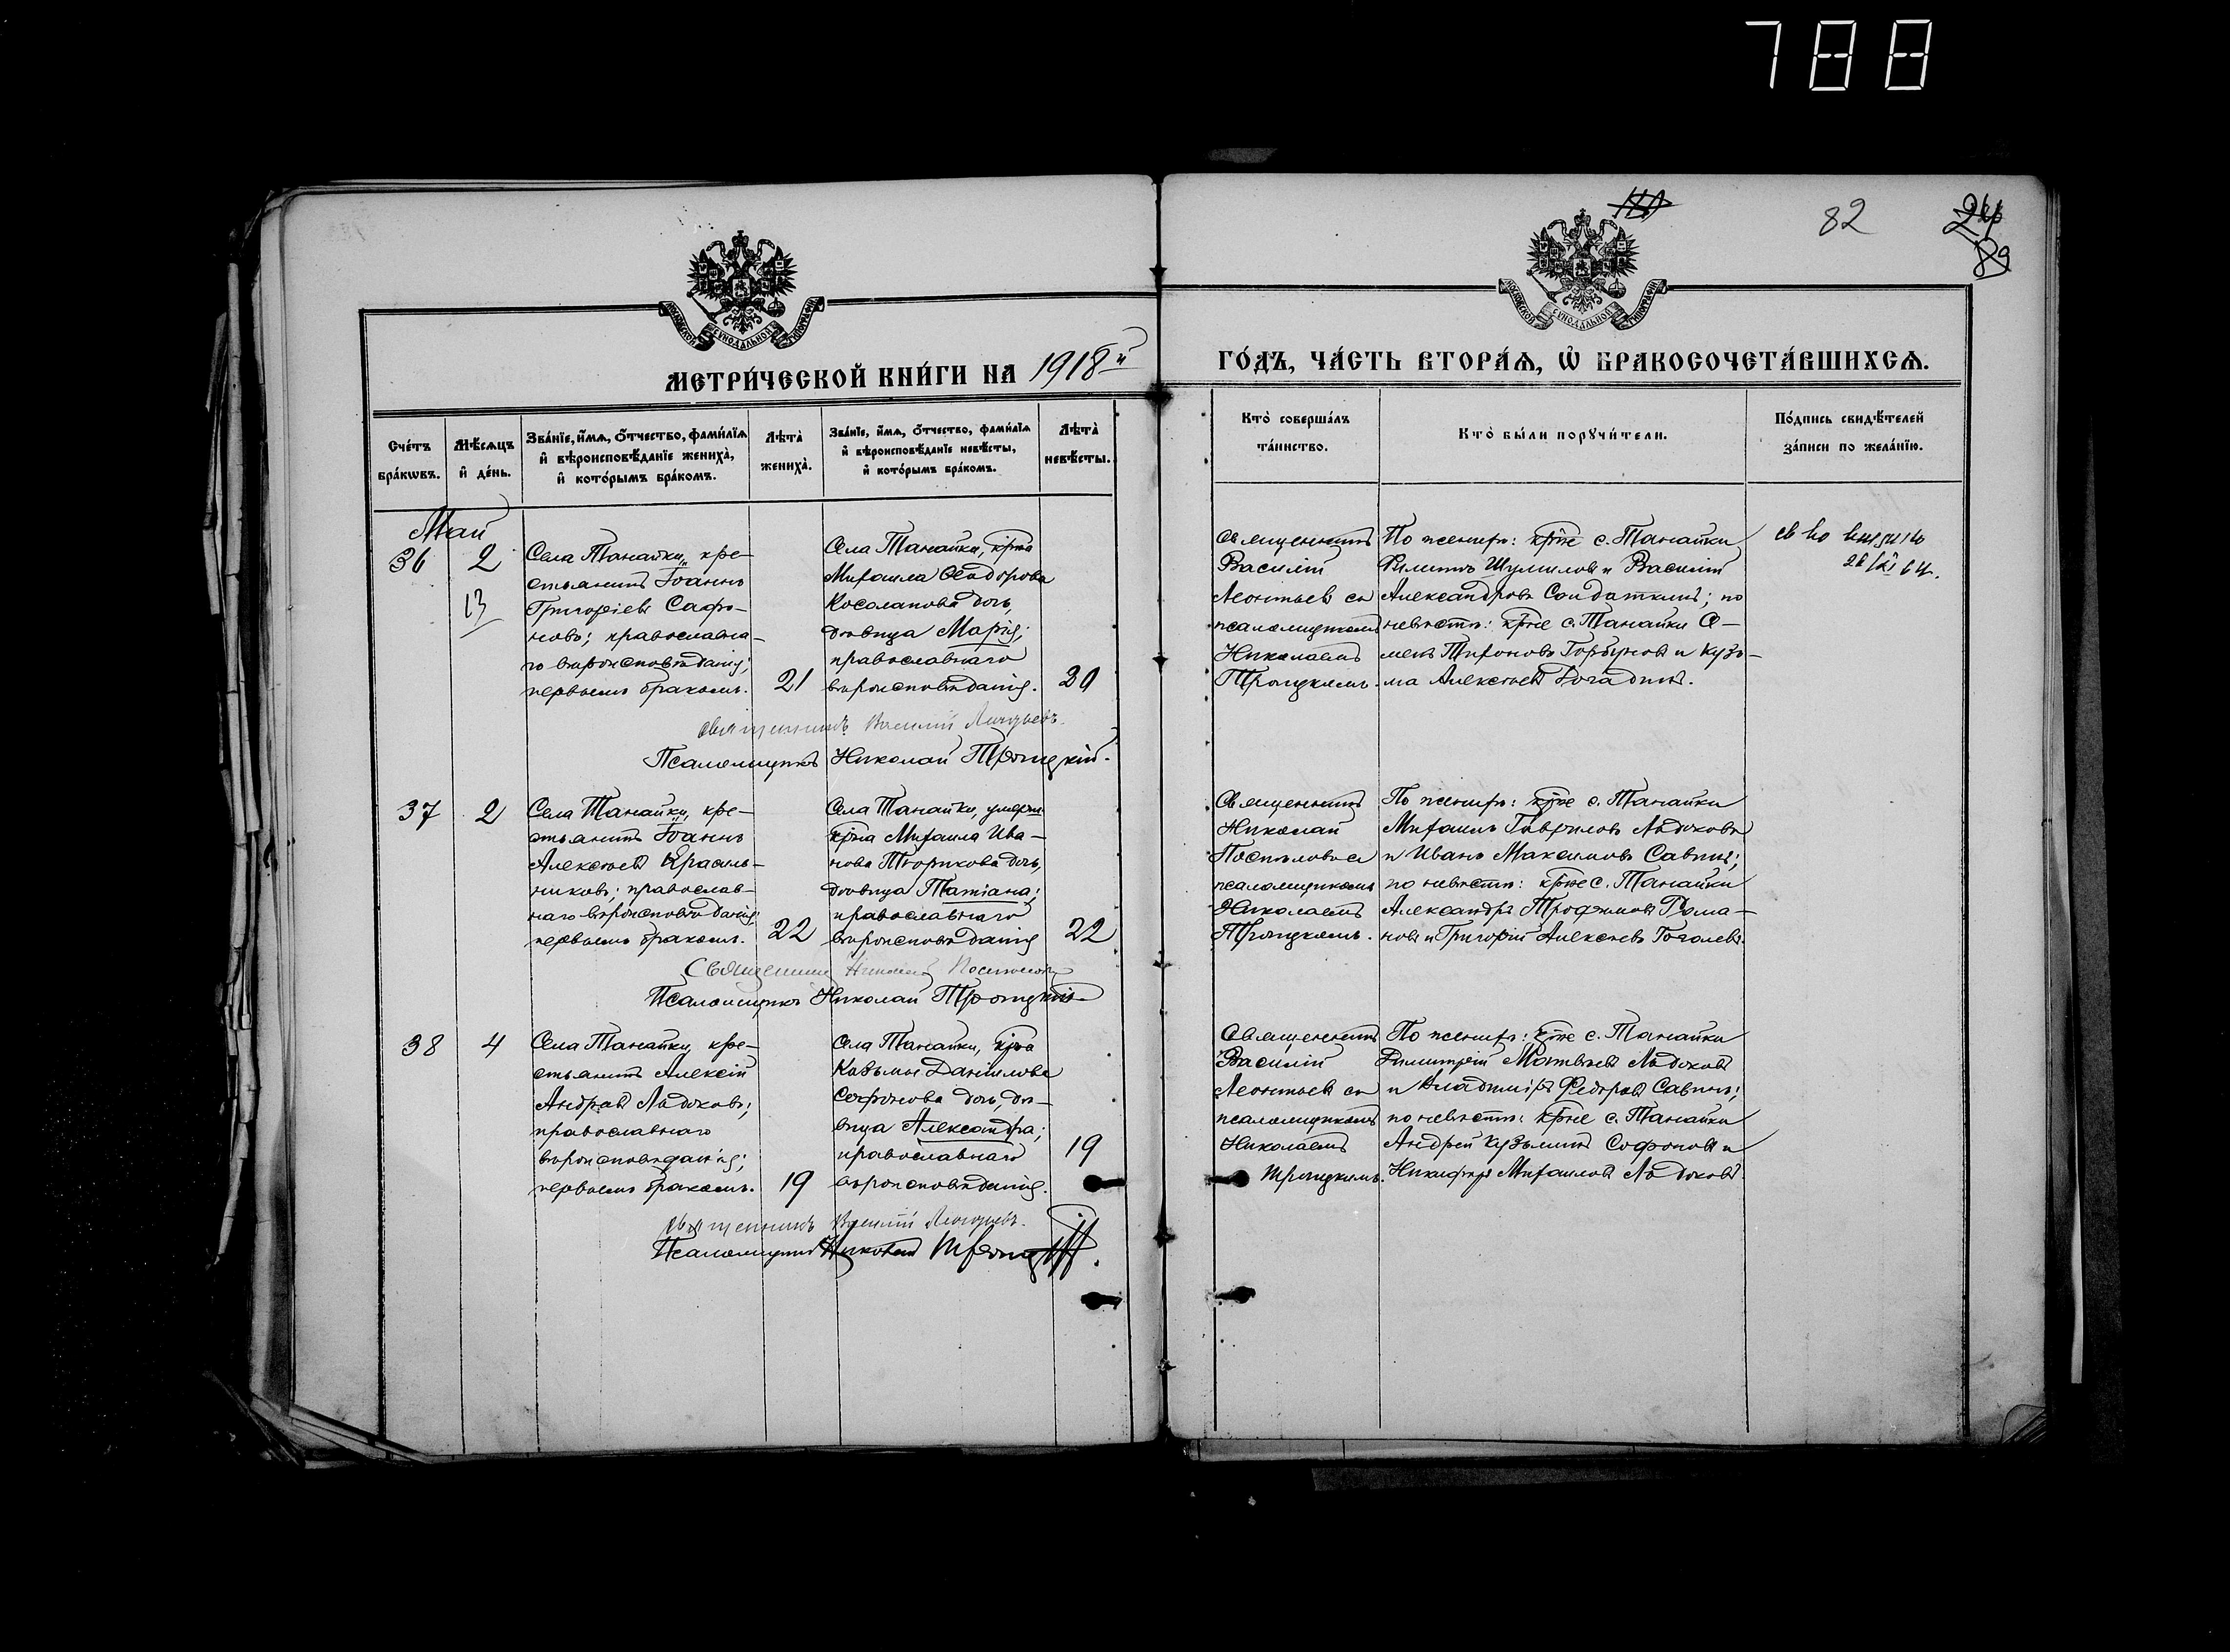 788
82
МОСКОВСКОЙ СѴНОДАЛЬНОЙ ТИПОГРАФІИ
МОСКОВСКОЙ СѴНОДАЛЬНОЙ ТИПОГРАФІИ
МЕТРИ́ЧЕСКОЙ КНИ́ГИ НА 1918й ГО́ДЪ, ЧА́СТЬ ВТОРА́Ѧ, Ѡ҆ БРАКОСОЧЕТА́ВШИХСѦ.
Сче́тъ бра́кѡвъ.
Мѣ́сѧцъ и҆ де́нь.
Зва́нїе, и҆́мѧ, ѻ҆́тчество, фами́лїѧ
и҆ вѣроисповѣ́данїе жениха̀,
и҆ кото́рымъ бра́комъ.
Лѣ́та̀ жениха̀.
Зва́нїе, и҆́мѧ, ѻ҆́тчество, фами́лїѧ
и҆ вѣроисповѣ́данїе невѣ́сты,
и҆ кото́рымъ бра́комъ.
Лѣ́та̀ невѣ́сты.
Кто̀ соверша́лъ
та́инство.
Кто̀ бы́ли порꙋчи́тели.
По́дпись свидѣ́телей
за́писи по жела́нїю.
Май
36
2
13
Села Танайки, кре-
стьянинъ Іоаннъ
Григоріевъ Сафо-
новъ; православна-
го вѣроисповѣданія;
первымъ бракомъ.
21
Села Танайки, крна
Михаила Ѳеодорова
Косолапова дочь,
дѣвица Марія;
православнаго
вѣроисповѣданія.
20
Священникъ
Василій
Леонтьевъ съ
псаломщикомъ
Николаемъ
Троицкимъ.
По женихѣ: крне с. Танайки
Филиппъ Шумиловъ и Василій
Александровъ Солдаткинъ; по
невѣстѣ: крне с. Танайки С-
менъ Тихоновъ Горбуновъ и Кузь-
ма Алексѣевъ
Священникъ Василій Леонтьевъ.
Псаломщикъ Николай Троицкій.
37
2
Села Танайки, кре-
стьянинъ Іоаннъ
Алексѣевъ Красиль-
никовъ; православ-
наго вѣроисповѣданія;
первымъ бракомъ.
22
Села Танайки, умерш.
крна Михаила Ива-
нова Творикова дочь,
дѣвица Татіана;
православнаго
вѣроисповѣданія
22
Священникъ
Николай
Поспѣловъ съ
псаломщикомъ
Николаемъ
Троицкимъ.
По женихѣ: крне с. Танайки
Михаилъ Гавриловъ Авдоковъ
и Иванъ Максимовъ Савинъ;
по невѣстѣ: крне с. Танайки
Александръ Трофимовъ Рома-
новъ и Григорій Алексѣевъ Гоголевъ.
Священникъ Николай Поспѣловъ
Псаломщикъ Николай Троицкій
38
4
Села Танайки, кре-
стьянинъ Алексій
Андреевъ Авдоковъ;
православнаго
вѣроисповѣданія;
первымъ бракомъ.
19
Села Танайки, крна
Козьмы Даніилова
Софонова дочь, дѣ-
вица Александра;
православнаго
вѣроисповѣданія.
19
Священникъ
Василій
Леонтьевъ съ
псаломщикомъ
Николаемъ
Троицкимъ.
По женихѣ: крне с. Танайки
Димитрій Матвѣевъ Авдоковъ
и Владиміръ Федоровъ Савинъ;
по невѣстѣ: крне с. Танайки
Андрей Кузьминъ Софоновъ и
Никифоръ Михаиловъ Авдоковъ.
Священникъ Василій Леонтьевъ.
Псаломщикъ Николай Троицкій.